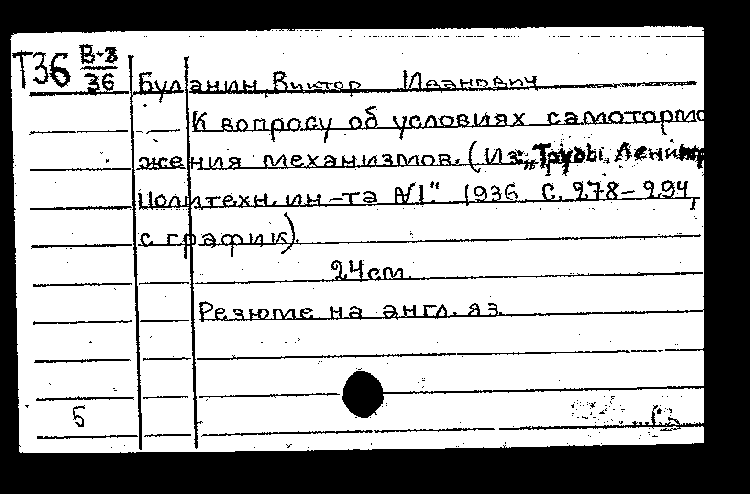 Т36 В-3
36
Буланин, Виктор Иванович
К вопросу об условиях самотормо
жения механизмов. (Из „Труды Ленингр
Политехн. ин-та №1". 1936. С. 278-294,
с график).
24 см.
Резюме на англ. яз.
5